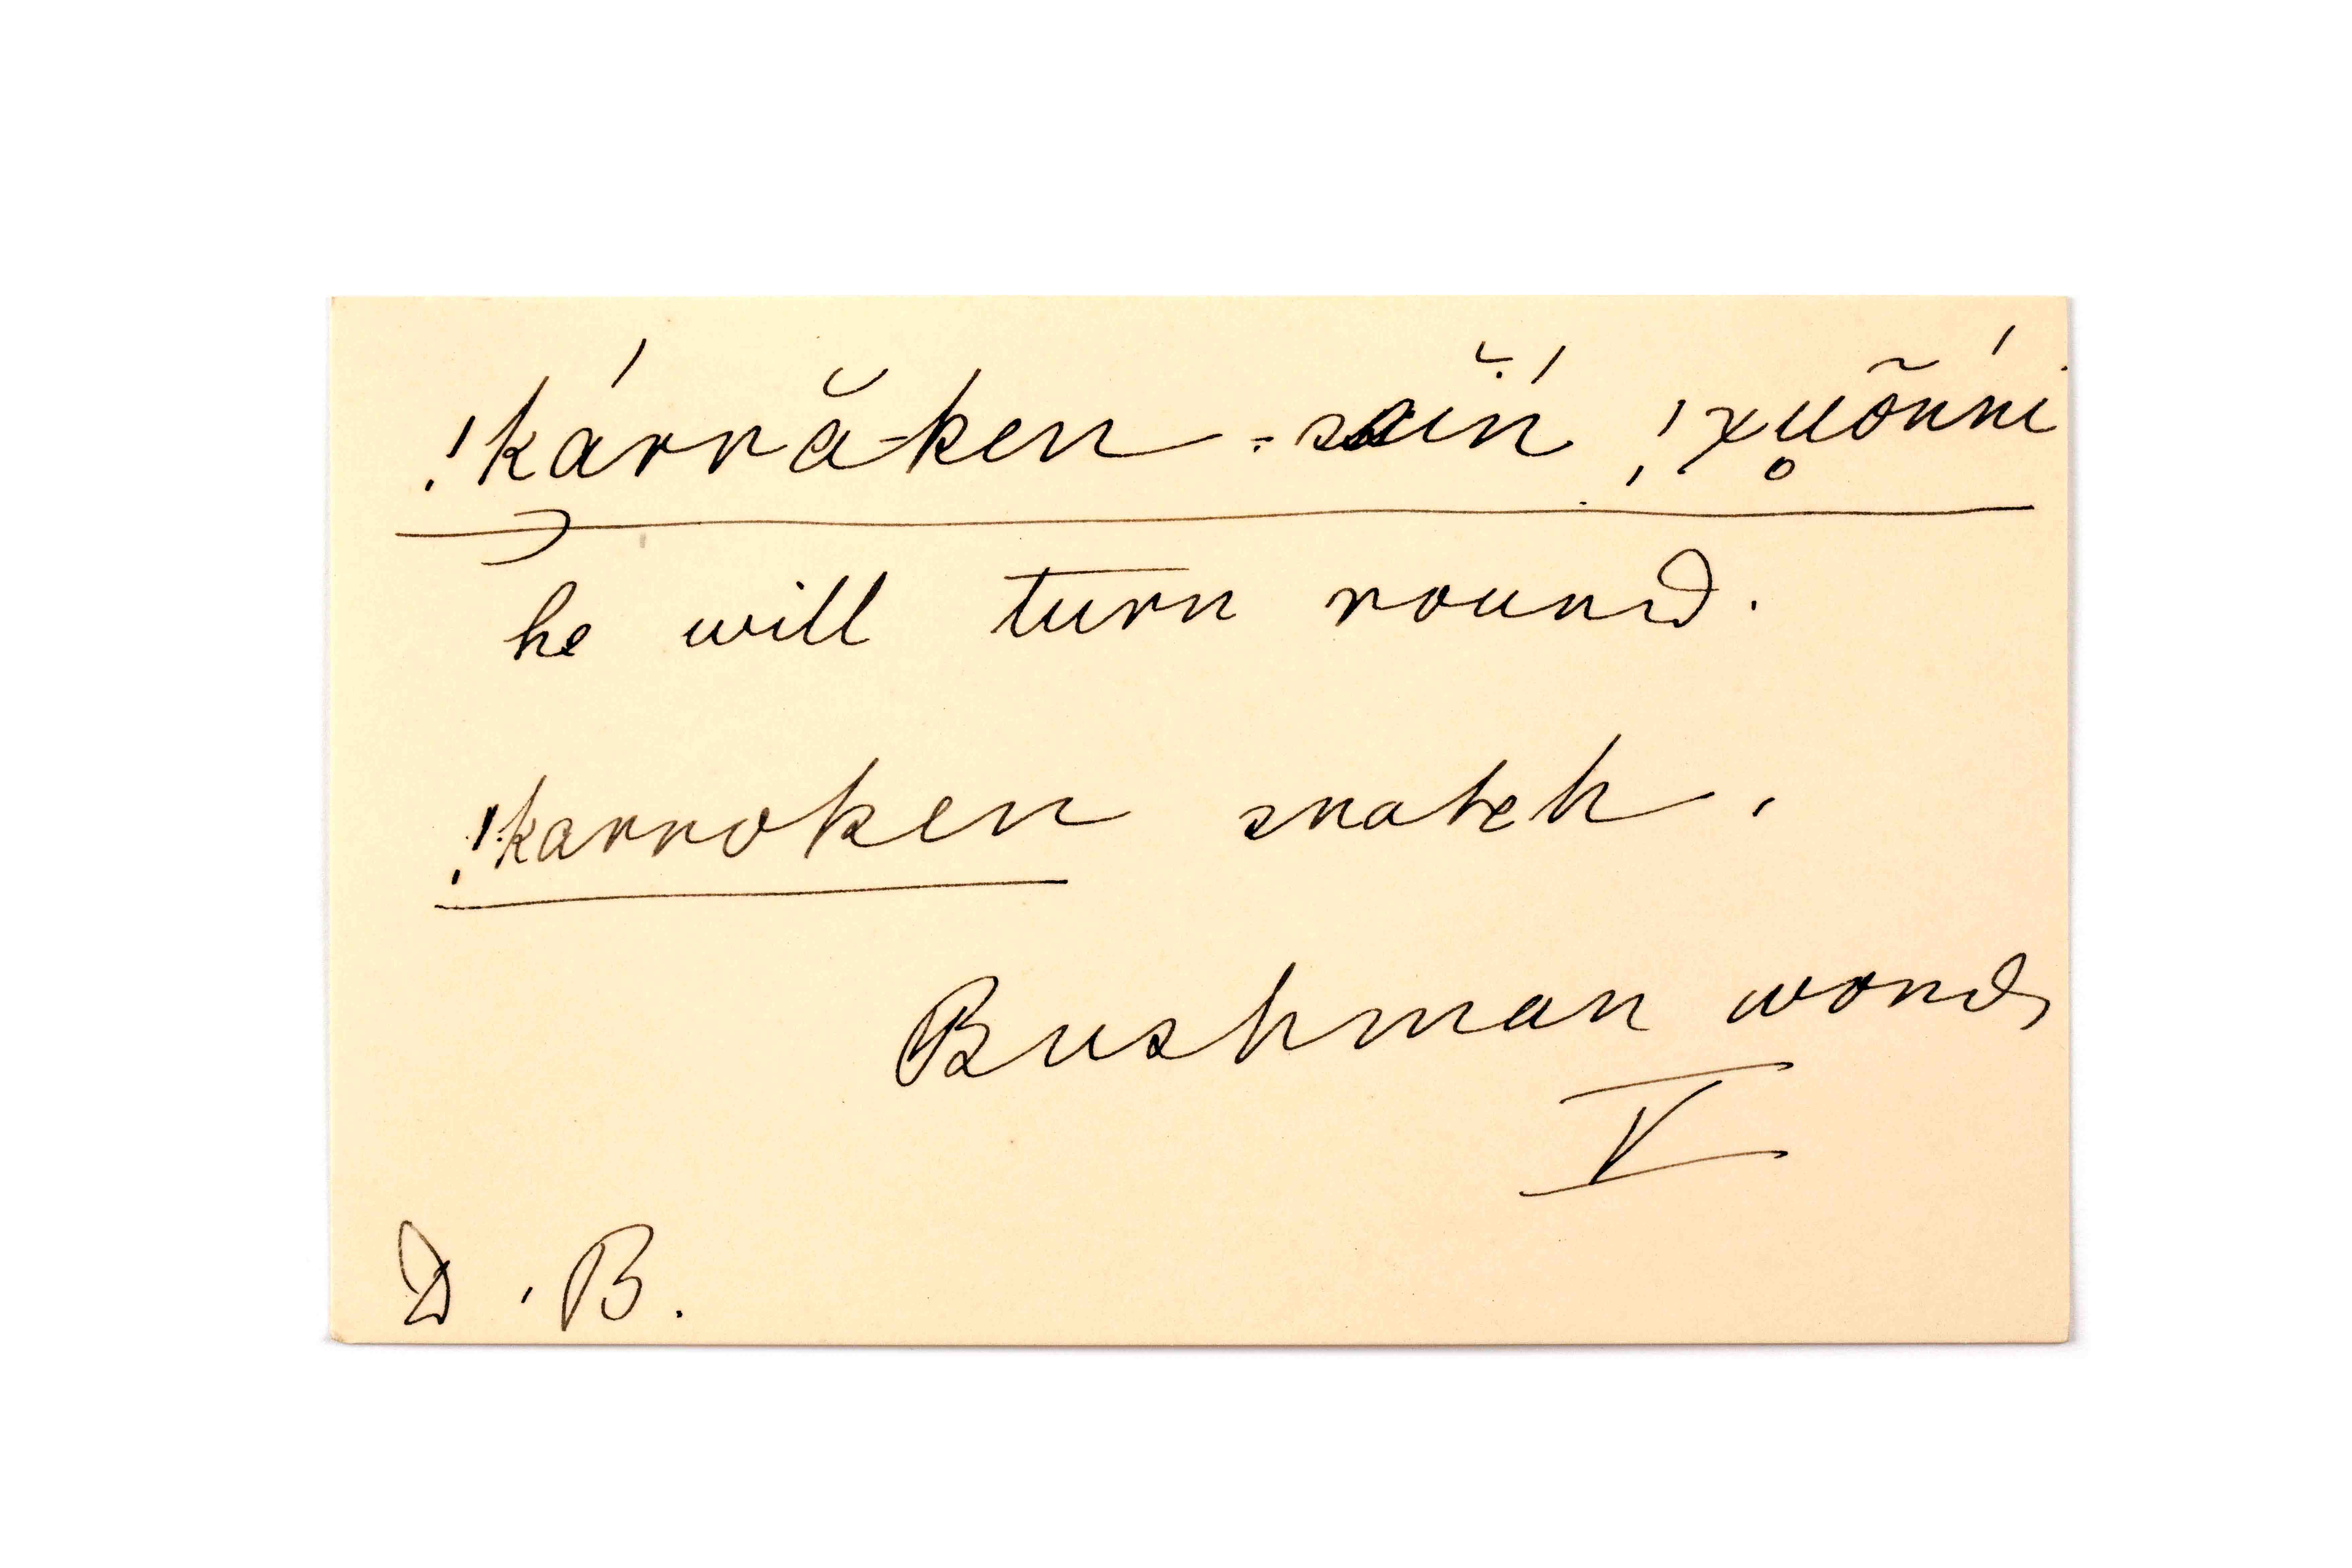 !kárră-ken-sĭń !χu̥õnńi
he will turn round.
!karroken snatch.
Bushman words
V
D.B.